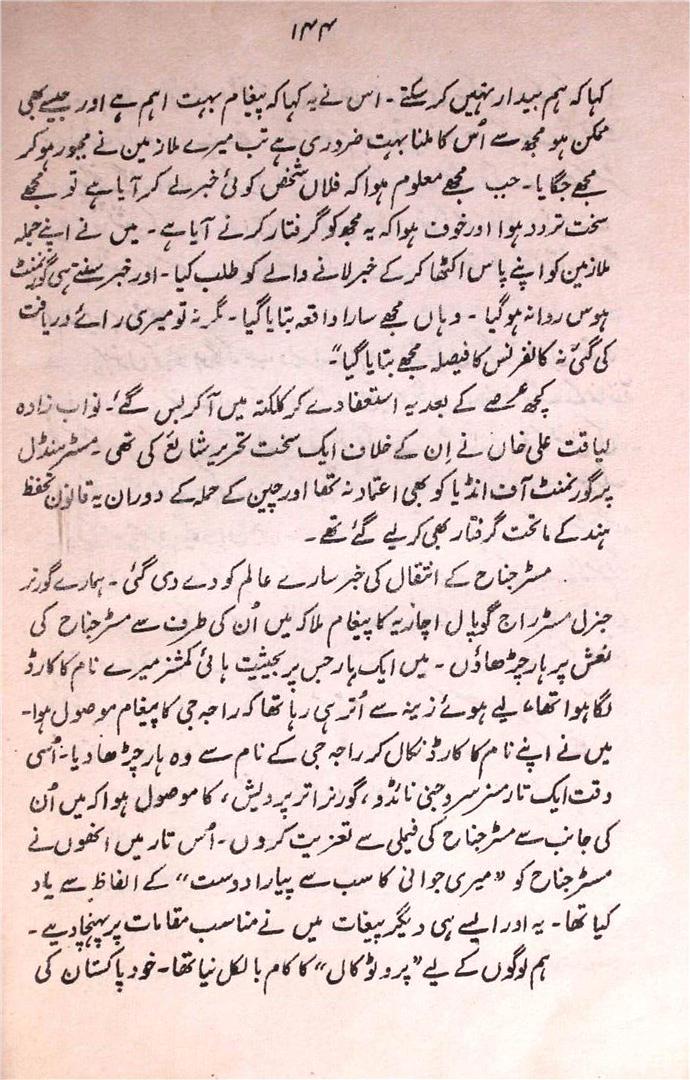 ۱۴۴
کہا کہ ہم بیدار نہیں کر سکتے ۔ اس نے یہ کہا کہ پیغام بہت اہم ہے اور جیسے بھی
ممکن ہو مجھ سے اُس کا ملنا بہت ضروری ہے تب میرے ملازمین نے مجبور ہو کر
مجھے جگایا ۔ جب مجھے معلوم ہوا کہ فلاں شخص کوئی خبر لے کر آیا ہے تو مجھے
سخت تردد ہوا اور خوف ہوا کہ یہ مجھ کو گرفتار کرنے آیا ہے ۔ میں نے اپنے جملہ
ملازمین کو اپنے پاس اکٹھا کر کے خبر لانے والے کو طلب کیا ۔ اور خبر سنتے ہی گورنمنٹ
ہوس روانہ ہو گیا ۔ وہاں مجھے سارا واقعہ بتایا گیا ۔ مگر نہ تو میری رائے دریافت
کی گئی نہ کانفرنس کا فیصلہ مجھے بتایا گیا" ۔
کچھ عرصے کے بعد یہ استعفا دے کر کلکتہ میں آکر بس گئے ۔ نواب زادہ
لیاقت علی خاں نے اِن کے خلاف ایک سخت تحریر شائع کی تھی ۔ مسٹر منڈل
پر گورنمنٹ آف انڈیا کو بھی اعتماد نہ تھا اور چین کے حملہ کے دوران یہ قانون تحفظ
ہند کے ماتحت گرفتار بھی کر لیے گئے تھے ۔
مسٹر جناح کے انتقال کی خبر سارے عالم کو دے دی گئی ۔ ہمارے گورنر
جنرل مسٹر راج گوپال اچاریہ کا پیغام ملا کہ میں اُن کی طرف سے مسٹر جناح کی
نعش پر ہار چڑھاؤں ۔ میں ایک ہار جس پر بحیثیت ہائی کمشنر میرے نام کا کارڈ
لگا ہوا تھا، لیے ہوئے زینہ سے اُتر ہی رہا تھا کہ راجہ جی کا پیغام موصول ہوا ۔
میں نے اپنے نام کا کارڈ نکال کر راجہ جی کے نام سے وہ ہار چڑھا دیا ۔ اُسی
وقت ایک تار مسز سروجنی نائڈو، گورنر اتر پردیش، کا موصول ہوا کہ میں اُن
کی جانب سے مسٹر جناح کی فیملی سے تعزیت کروں ۔ اُس تار میں انھوں نے
مسٹر جناح کو "میری جوانی کا سب سے پیارا دوست" کے الفاظ سے یاد
کیا تھا ۔ یہ اور ایسے ہی دیگر پیغات میں نے مناسب مقامات پر پہنچا دیے ۔
ہم لوگوں کے لیے "پروٹوکال" کا کام بالکل نیا تھا ۔ خود پاکستان کی